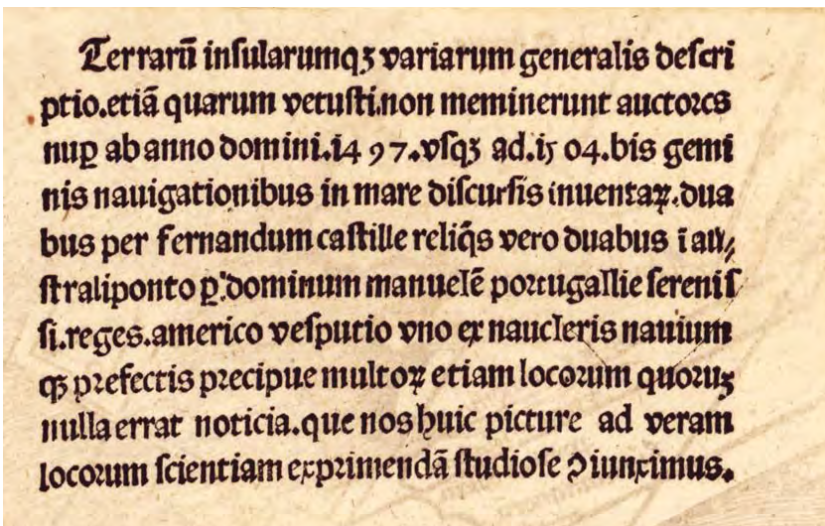 Terrarū inſularumqꝫ variarum generalis deſcri
ptio.etiā quarum vetuſti.non meminerunt auctores
nuꝑ ab anno domini.i497.vſqꝫ ad.i504.bis gemi
nis nauigationibus in mare diſcurſis inuentaꝝ.dua
bus per fernandum caſtille reliq̄s vero duabus ī au⸗
ſtraliponto ꝑ.dominum manuelē portugallie ſereniſ
ſi.reges.americo veſputio vno ex naucleris nauium
qꝫ prefectis precipue multoꝝ etiam locorum quoruꝫ
nulla errat noticia.que nos huic picture ad veram
locorum ſcientiam exprimendā ſtudioſe ꝯiunximus.